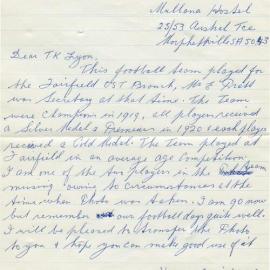 Mallana Hostel
25/53 Austral Tce
Morphettville SA 5043
Dear T K Lyon,
This football team played for
the Fairfield OST Branch, Mr
was Secretary at that time. The team
were Champions in 1919, all players received
a Silver Medal & Premiers in 1920 & each player
received a Gold Medal. The team played at
Fairfield in an average age Competition.
I am one of the two players in the team
missing owing to circumstances at the
time when Photo was taken. I am 90 now
but remember our football days quite well.
I will be pleased to transfer the Photo
to you & hope you can make good use of it